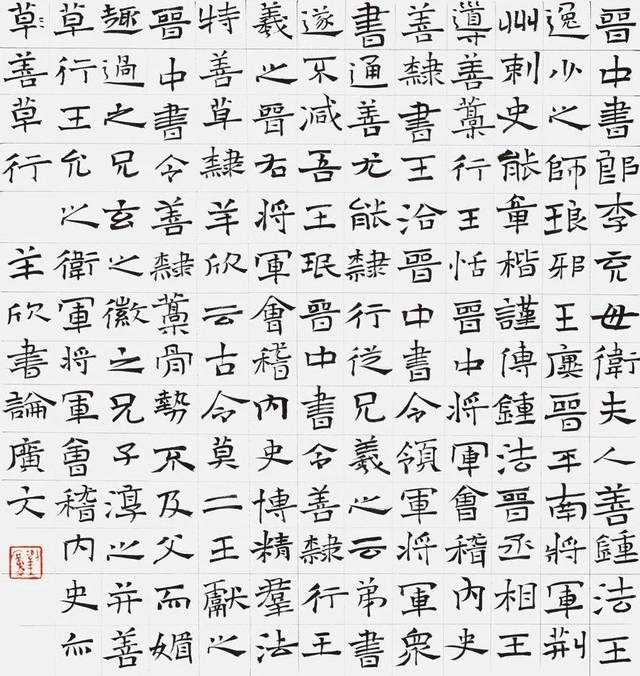 晉中書郎李充母衛夫人善鍾法王
逸少之師琅邪王廙晉平南將軍荊
州刺史能章楷謹傳鍾法晉丞相王
導善藁行王恬晉中將軍會稽內史
善隸書王洽晉中書令領軍將軍眾
書通善尤能隸行從兄羲之云弟書
遂不減吾王珉晉中書令善隸行王
羲之晉右將軍會稽內史博精羣法
特善草隸羊欣云古今莫二王獻之
晉中書令善隸藁骨勢不及父而媚
趣過之兄玄之徽之兄子淳之并善
草行王允之衛軍將軍會稽內史亦
草善草行 羊欣書論廣文